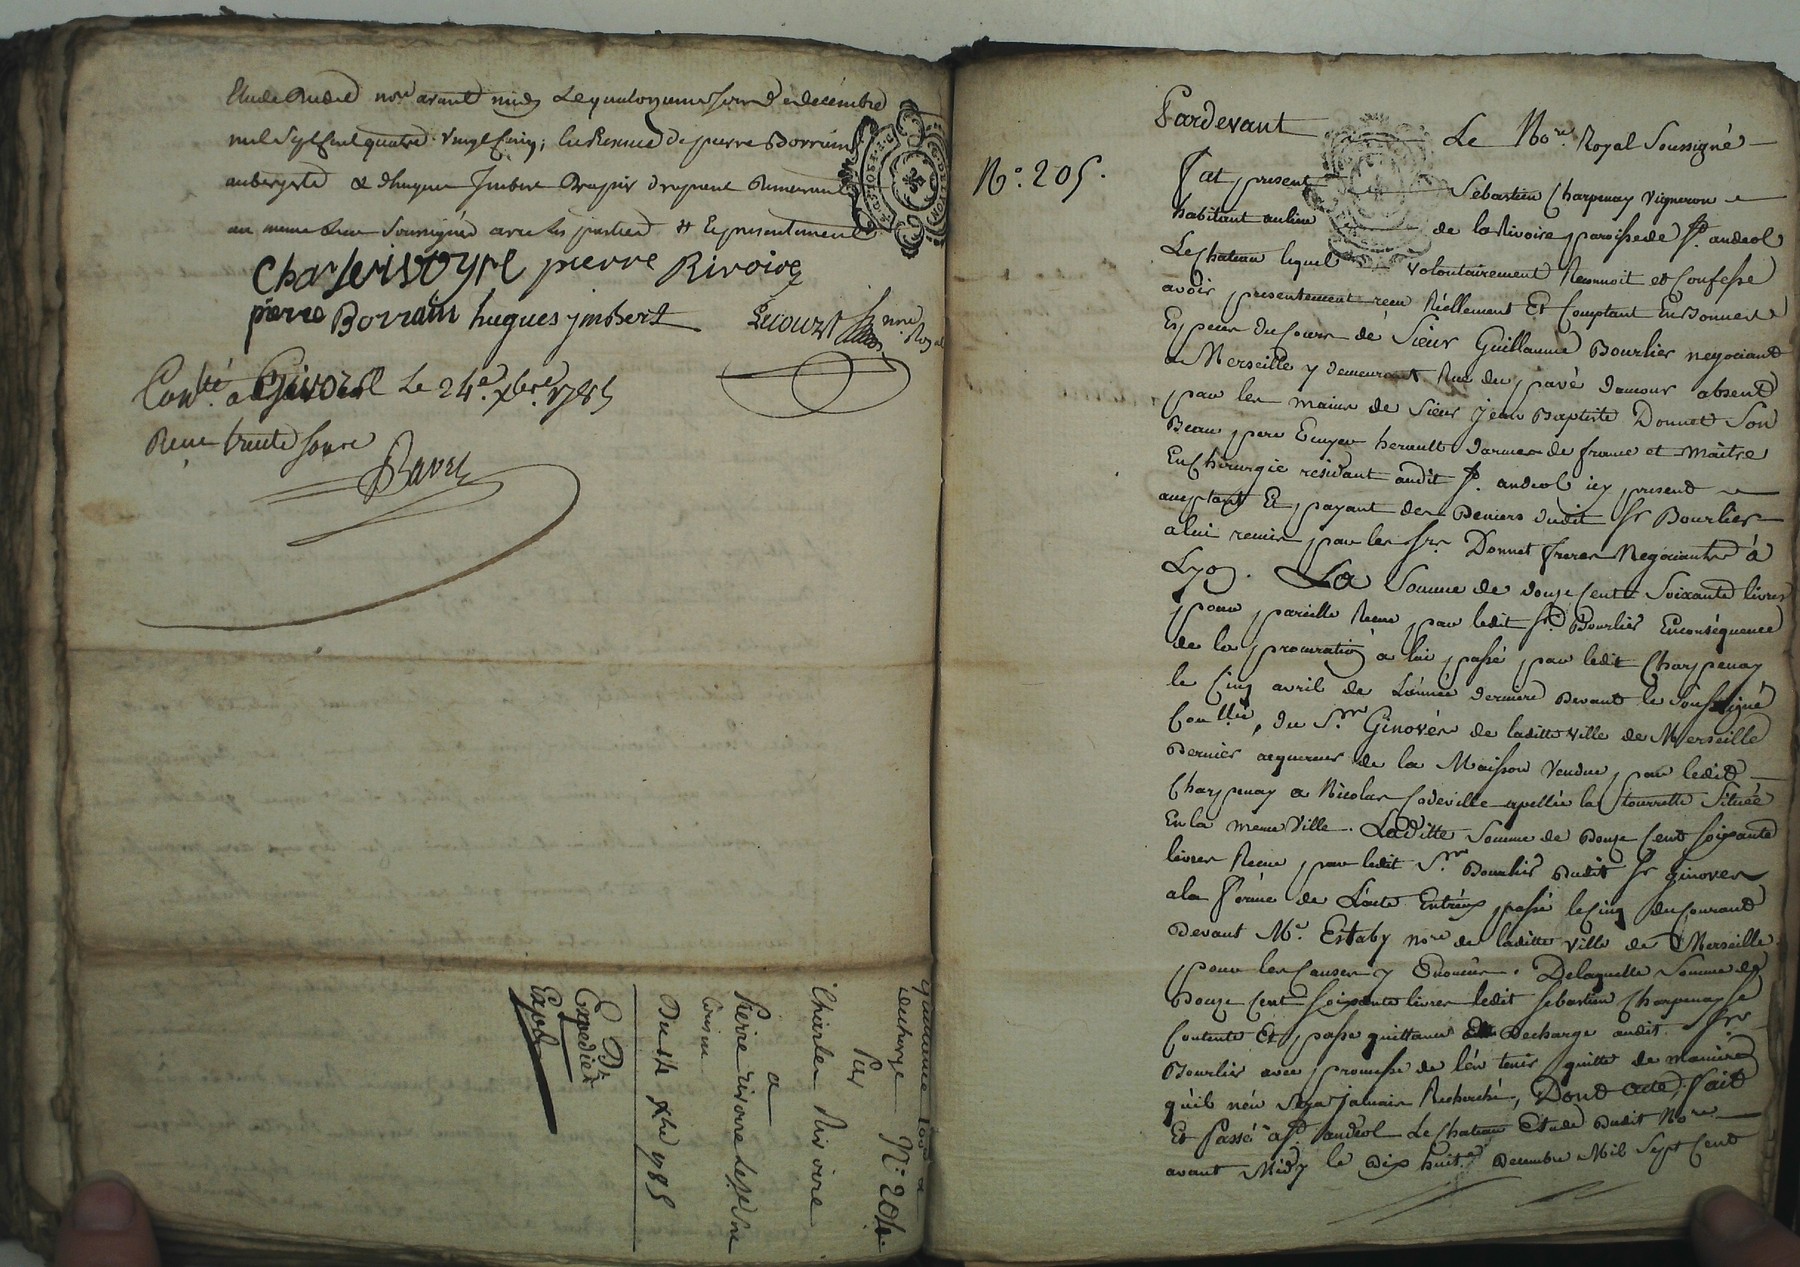 Etude dudit no.re avant midy Le quatorzieme jour de decembre
mil Sept Cent quatre vingt Cinq; En Presence de pierre Borrain
aubergiste & d'hugues Imbert
au meme lieu Soussignés avec les parties & Le present
Charle rivoyre pierre Rivoire
pierre Borrain hugues ymbert
no.re Royal
Con.llé a Givors Le 24.e Xbre 1785
Recu trente sous
Quittance
decharge N.o 204.
Par
Charles Rivoire
a
Pierre rivoire
Cousin
Du 14 Xbre 1785
Expedier
N.o 205.
Pardevant Le No.re Royal Soussigné
Fut present Sebastien Charpenay Vigneron
habitant au lieu de la Rivoire paroisse de S.t andeol
Le Chateau lequel volontairement Reconnoit et Confesse
avoir presentement recu Réellement Et Comptant En Bonnes
Especes du Cours de Sieur Guillaume Bourlier negociant
a Merseille y demeurant Rue du pavé damour absent
par les mains de Sieur jean Baptiste Donnet Son
Beau pere Ecuyer herault darmes de france et Maitre
En Chirurgie residant audit S.t andeol icy present
acceptant Et payant des Deniers dudit S.r Bourlier
a lui remis par les S.rs Donnet freres Negociants à
Lyon. La Somme de douze Cents Soixante livres
pour pareille Recue par ledit S.r Bourlier Enconséquence
de la procuration a lui passé par ledit Charpenay
le Cinq avril de L'année derniere Devant le Soussigné
Con.llée, du S.r Ginovés de laditte Ville de Merseille
Dernier acquereur de la Maison Vendue par ledit
Charpenay a Nicolas Codeville apellée la tourrette Située
En la meme Ville. Laditte Somme de Douze Cent soixante
livres Recue par ledit S.r Bourlier Dudit S.r ginoves
a la Forme de L'acte Entreux passé le Cinq du Courant
Devant M.e Estaby no.re de laditte Ville de Merseille
pour les Causes y Enoncées. De laquelle Somme de
Douze Cent soixante livres ledit sebastien Charpenay se
Contente Et passe quittance Et Decharge audit S.r
Bourlier avec promesse de l'en tenir quitte de maniere
qu'il n'en sera jamais Recherché, Dont acte, Fait
Et Passé a S.t andeol Le Chateau Etude Dudit No.re
avant Midy le Dix huit.e Decembre Mil Sept Cent